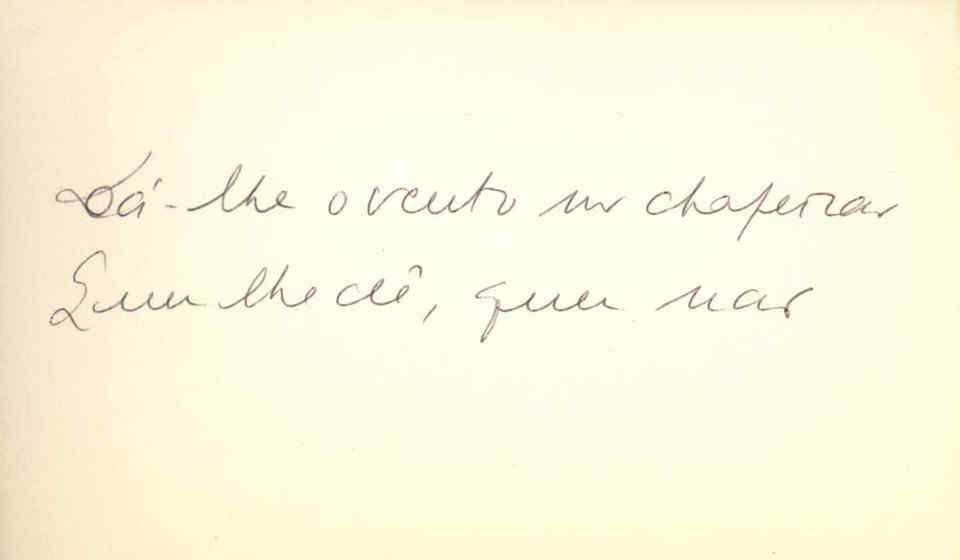 Dá-lhe o vento no chapeirão
Quer lhe dê, quer não